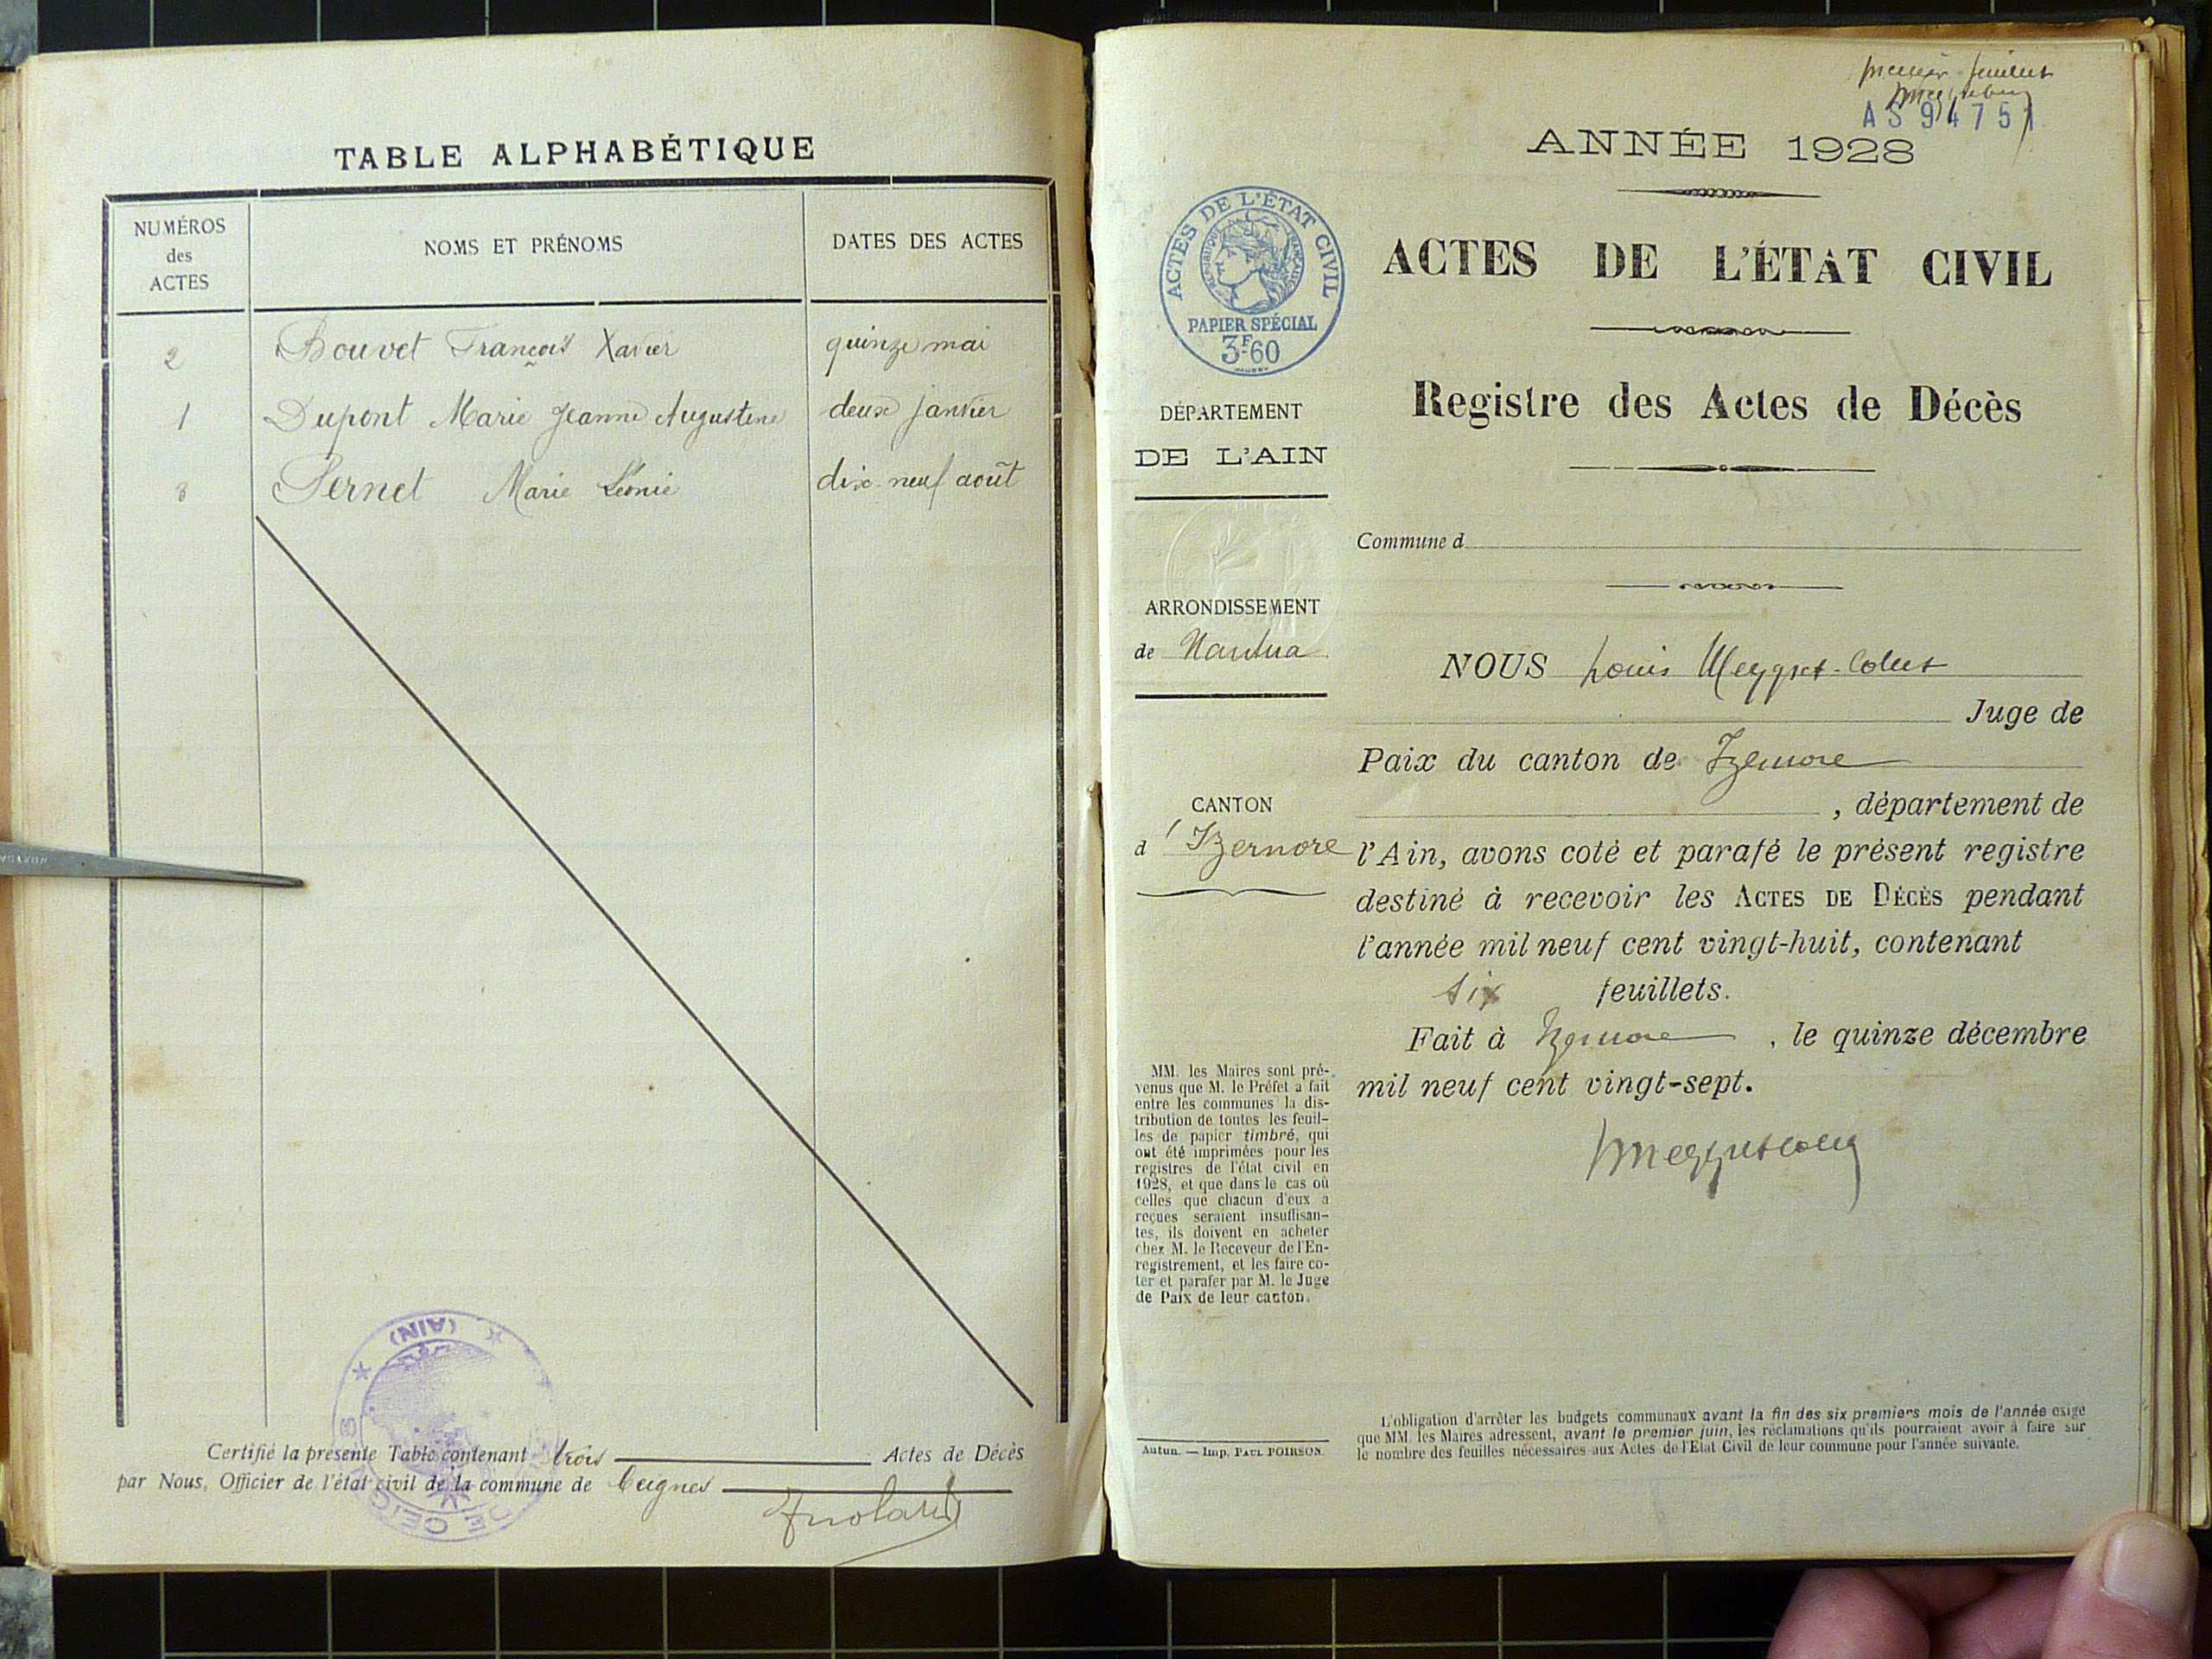 TABLE ALPHABÉTIQUE
NUMÉROS
des
ACTES
NOMS ET PRÉNOMS
DATES DES ACTES
2 Bouvet François Xavier quinze mai
1 Dupont Marie Jeanne Augustine deux janvier
3 Pernet Marie Léonie dix-neuf août
(AIN)
Certifié la présente Table contenant trois Actes de Décès
par Nous, Officier de l'état civil de la commune de Ceignes
premier feuillet
AS 94751
ANNÉE 1928
ACTES DE L'ÉTAT CIVIL
RÉPUBLIQUE FRANÇAISE
PAPIER SPÉCIAL
3F60
ACTES DE L'ÉTAT CIVIL
Registre des Actes de Décès
DÉPARTEMENT
DE L'AIN
Commune d
ARRONDISSEMENT
de Nantua
NOUS Louis Meygret-Collet
Juge de
Paix du canton de Izernore
, département de
CANTON
d'Izernore
l'Ain, avons coté et parafé le présent registre
destiné à recevoir les ACTES DE DÉCÈS pendant
l'année mil neuf cent vingt-huit, contenant
six feuillets.
Fait à Izernore, le quinze décembre
mil neuf cent vingt-sept.
MM. les Maires sont pré-
venus que M. le Préfet a fait
entre les communes la dis-
tribution de toutes les feuil-
les de papier timbré, qui
ont été imprimées pour les
registres de l'état civil en
1928, et que dans le cas où
celles que chacun d'eux a
reçues seraient insuffisan-
tes, ils doivent en acheter
chez M. le Receveur de l'En-
registrement, et les faire co-
ter et parafer par M. le Juge
de Paix de leur canton.
Autun. — Imp. PAUL POIRSON.
L'obligation d'arrêter les budgets communaux avant la fin des six premiers mois de l'année exige
que MM. les Maires adressent, avant le premier juin, les réclamations qu'ils pourraient avoir à faire sur
le nombre des feuilles nécessaires aux Actes de l'Etat Civil de leur commune pour l'année suivante.